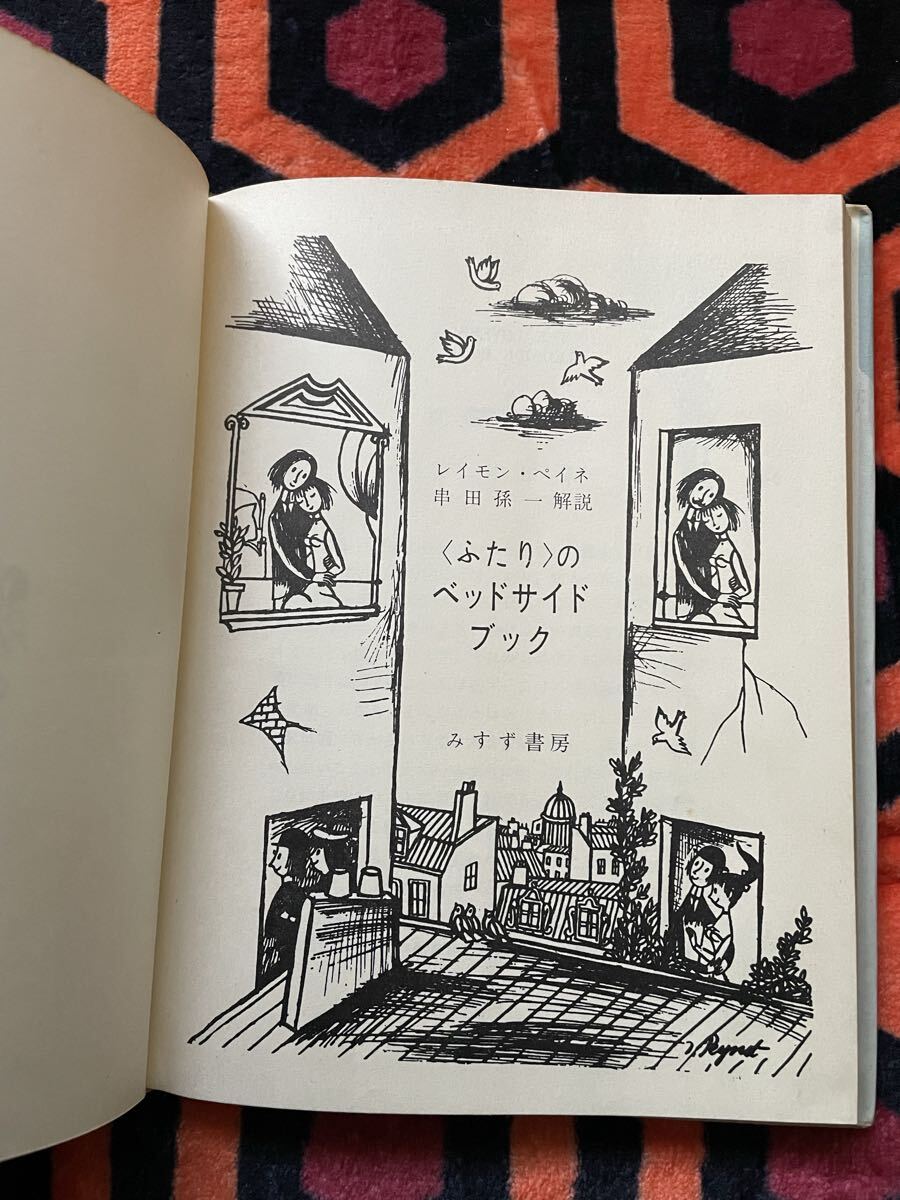 レイモン・ペイネ
串田孫一解説
〈ふたり〉の
ベッドサイド
ブック
みすず書房
Peynet